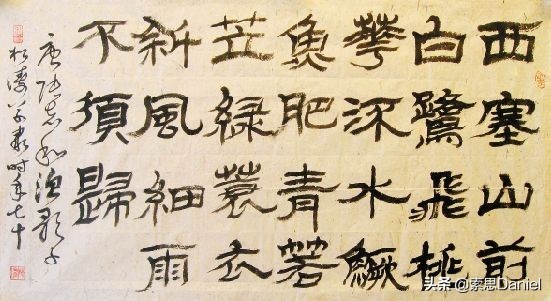 西塞山前
白鷺飛桃
華流水鱖
魚肥青箬
笠綠蓑衣
斜風細雨
不須歸
唐张志和渔歌子
时年七十
头条 @索思Daniel